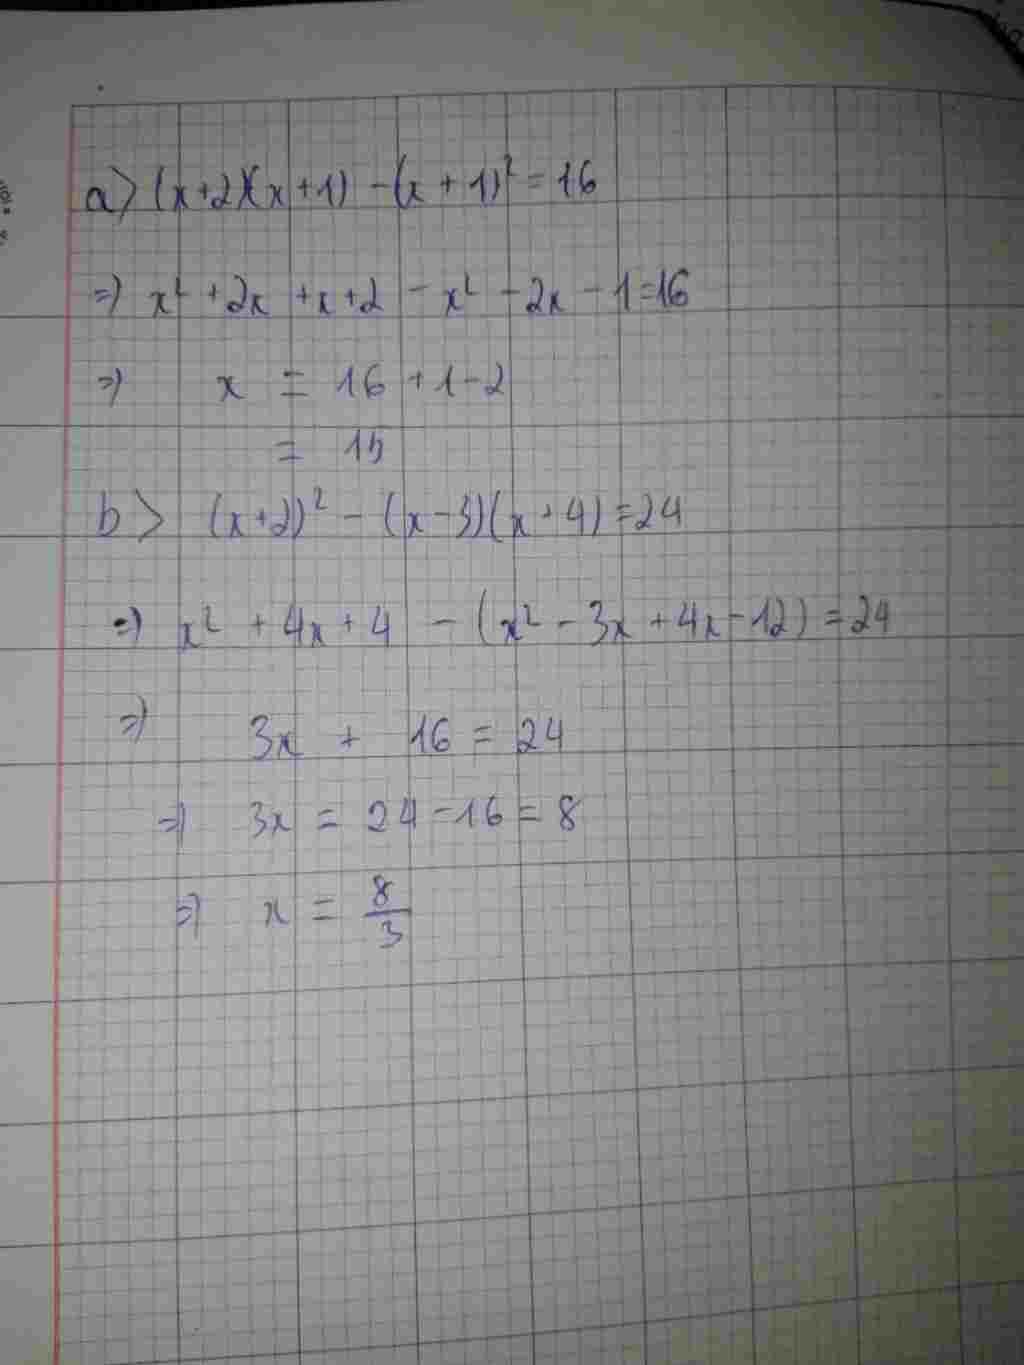 a> (x+2)(x+1) - (x+1)² = 16
=> x² + 2x + x + 2 - x² - 2x - 1 = 16
=> x = 16 + 1 - 2
= 15
b> (x+2)² - (x-3)(x+4) = 24
=> x² + 4x + 4 - (x² - 3x + 4x - 12) = 24
=> 3x + 16 = 24
=> 3x = 24 - 16 = 8
=> x = 8/3